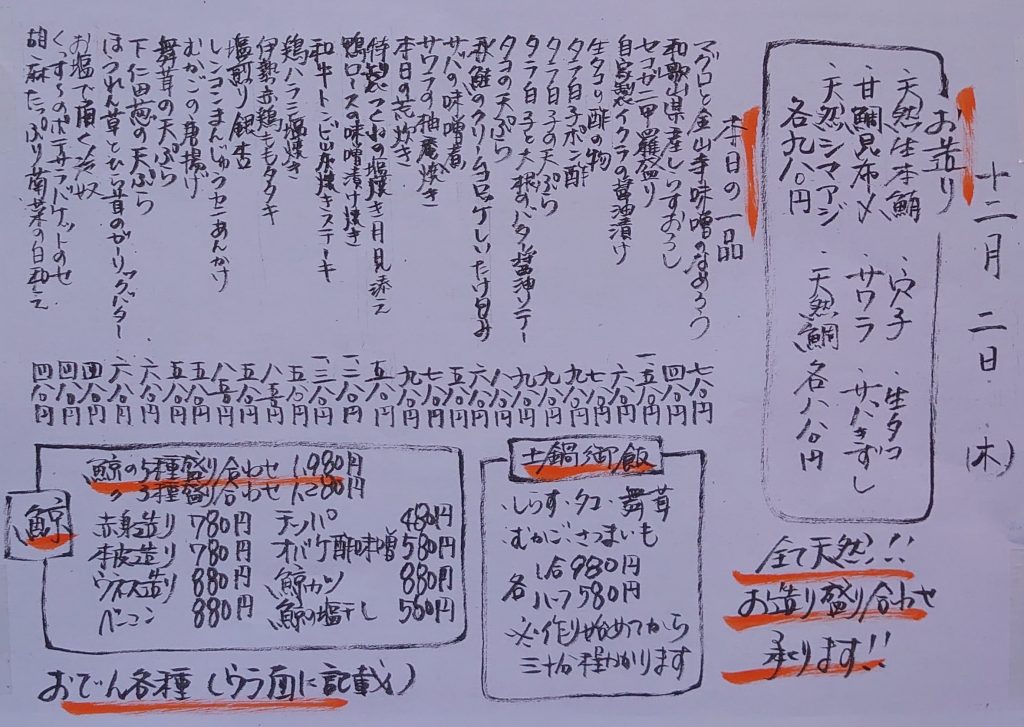 十二月二日(木)
お造り
・天然生本鮪 ・穴子 ・生タコ
・甘鯛昆布〆 ・サワラ ・サバきずし
・天然シマアジ ・天然鯛 各八八〇円
各九八〇円
全て天然!!
お造り盛り合わせ
承ります!!
本日の一品
マグロと金山寺味噌のなめろう 七八〇円
和歌山県産しらすおろし 四八〇円
セコガニ甲羅盛り 一五八〇円
自家製イクラの醤油漬け 六八〇円
生タコの酢の物 七八〇円
タラ白子ポン酢 九八〇円
タラ白子の天ぷら 九八〇円
タラ白子と大根のバター醤油ソテー 九八〇円
タコの天ぷら 八八〇円
秋鮭のクリームコロッケしいたけ包み 六八〇円
サバの味噌煮 五八〇円
サワラの柚庵焼き 七八〇円
本日の荒炊き 九八〇円
特製つくねの塩焼き月見添え 五八〇円
鴨ロースの味噌漬け焼き 一二八〇円
和牛トンビ炭焼きステーキ 一三八〇円
鶏ハラミ塩焼き 五八〇円
伊勢赤鶏ももタタキ
塩煎り銀杏
レンコンまんじゅうウニあんかけ
むかごの唐揚げ 五八〇円
舞茸の天ぷら 五八〇円
下仁田葱の天ぷら 六八〇円
ほうれん草とひら茸のガーリックバター 六八〇円
お塩で頂く冷奴 四八〇円
ポテサラバケットのせ 四八〇円
胡麻たっぷり菊菜の白和え 四八〇円
土鍋御飯
・しらす・タコ・舞茸
・むかご・さつまいも
各 1合 980円
ハーフ 580円
※作り始めてから
三十分程かかります
鯨
鯨の5種盛り合わせ 1,980円
〃 3種盛り合わせ 1,280円
赤身造り 780円
本皮造り 780円
ウネス造り 880円
ベーコン 880円
テッパ 480円
オバケ酢味噌 580円
鯨カツ 880円
鯨の塩干し 580円
おでん各種(ウラ面に記載)